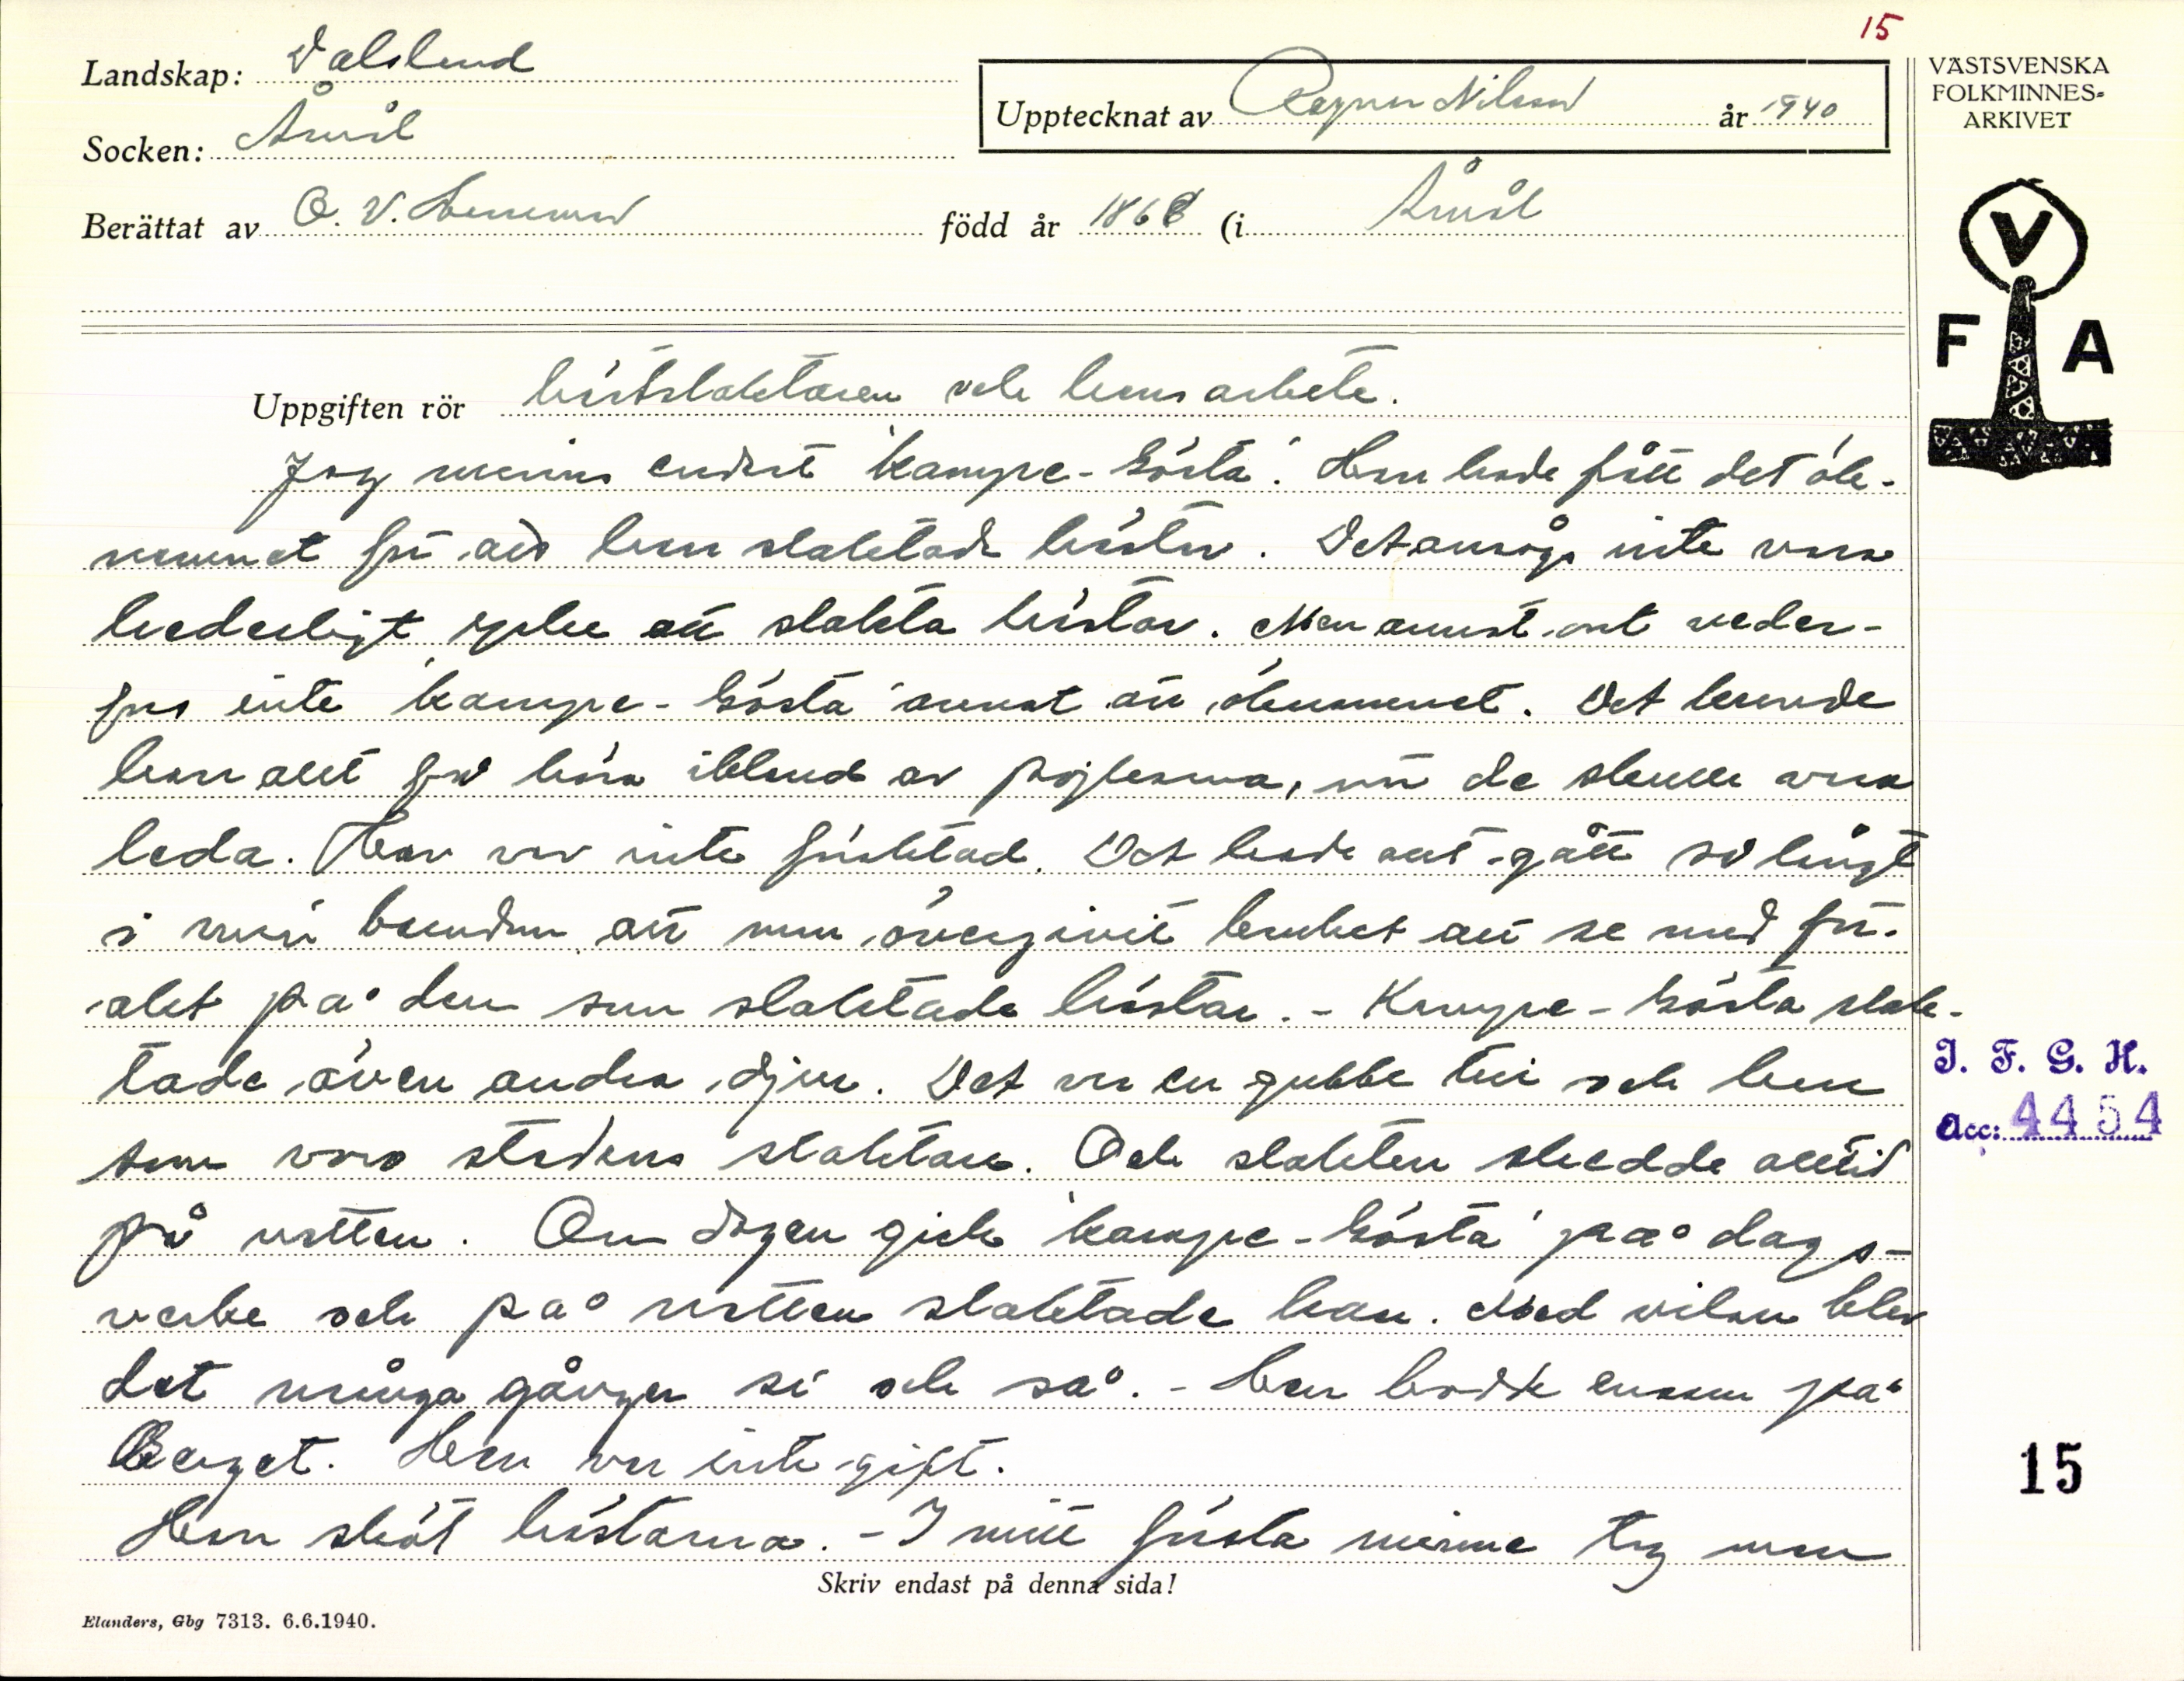 15
Landskap: Dalsland
Socken: Åmål
Upptecknat av Ragnar Nilsson år 1940
Berättat av O. V. född år 1868 (i Åmål
VÄSTSVENSKA
FOLKMINNES-
ARKIVET
V
F A
Uppgiften rör hästslaktaren och hans arbete.
Jag minns endast "Kampe-Gösta". Han hade fått det ök-
namnet för att han slaktade hästar. Det ansågs inte vara
hederligt yrke att slakta hästar. Men annat ont veder-
fors inte "Kampe-Gösta" annat än öknamnet. Det kunde
han allt få höra ibland av pojkarna, när de skulle vara
leda. Han var inte föraktad. Det hade allt gått så långt
i min barndom att man övergivit bruket att se med för-
akt på den som slaktade hästar. - Kampe-Gösta slak-
tade även andra djur. Det var en gubbe till och han
som voro stadens slaktare. Och slakten skedde alltid
på natten. Om dagen gick "Kampe-Gösta" på dags-
verke och på natten slaktade han. Med vilan blev
det många gånger si och så. - Han bodde ensam på
Berget. Han var inte gift.
Han sköt hästarna. - I mitt första minne tog man
Skriv endast på denna sida!
Elanders, Gbg 7313. 6.6.1940.
I. F. G. H.
Acc: 4454
15